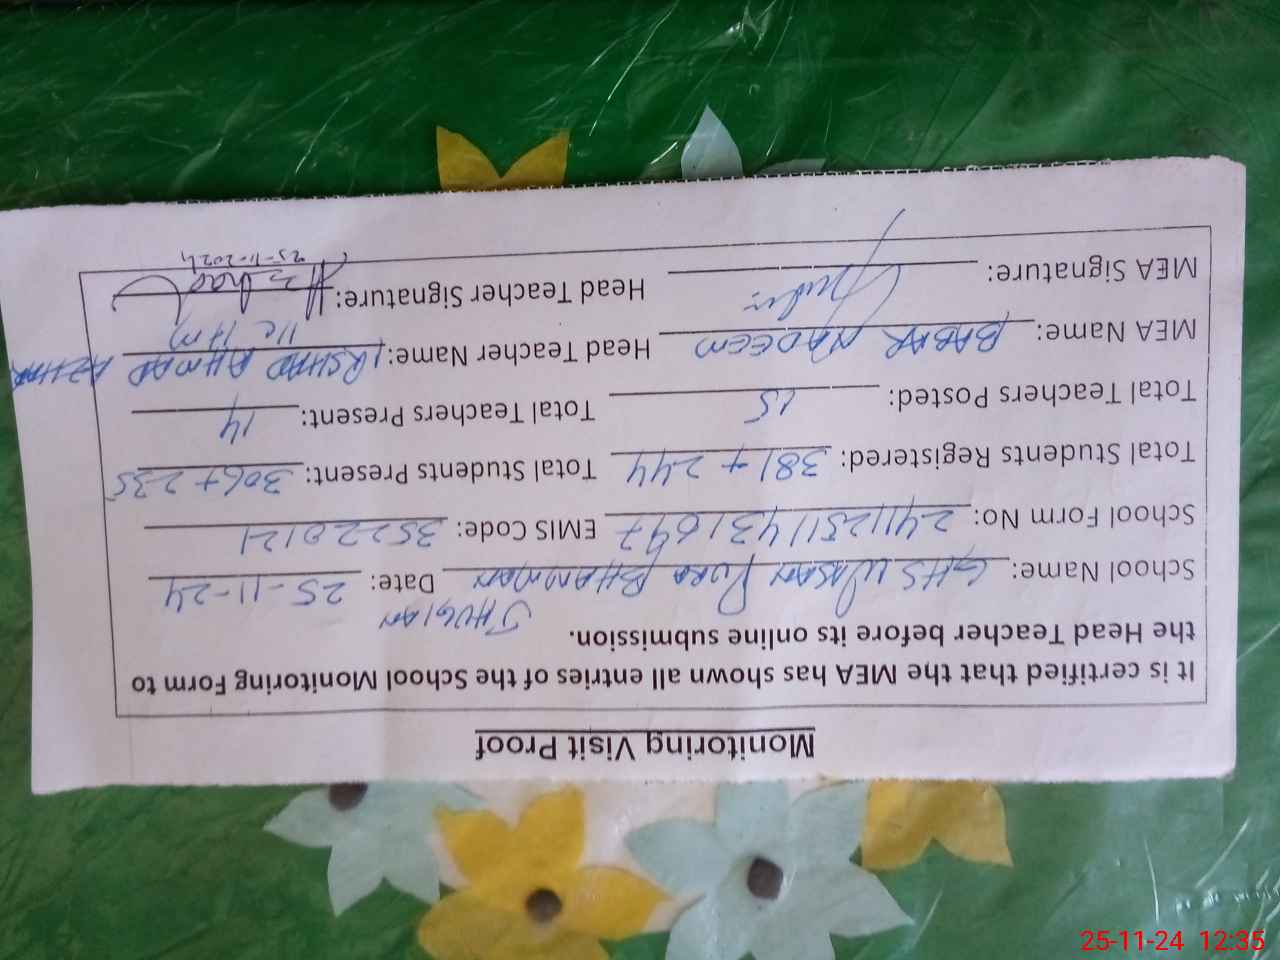 Monitoring Visit Proof
It is certified that the MEA has shown all entries of the School Monitoring Form to
the Head Teacher before its online submission.
JHUGIAN
School Name: GHS WASAN PURA BHAMMAN Date: 25-11-24
School Form No: 241125114431647 EMIS Code: 35220121
Total Students Registered: 381+244 Total Students Present: 306+235
Total Teachers Posted: 15 Total Teachers Present: 14
MEA Name: BABAR NADEEM Head Teacher Name: IRSHAD AHMAD AZHAR
I/C H/M
MEA Signature: Head Teacher Signature:
25-11-2024
25-11-24 12:35